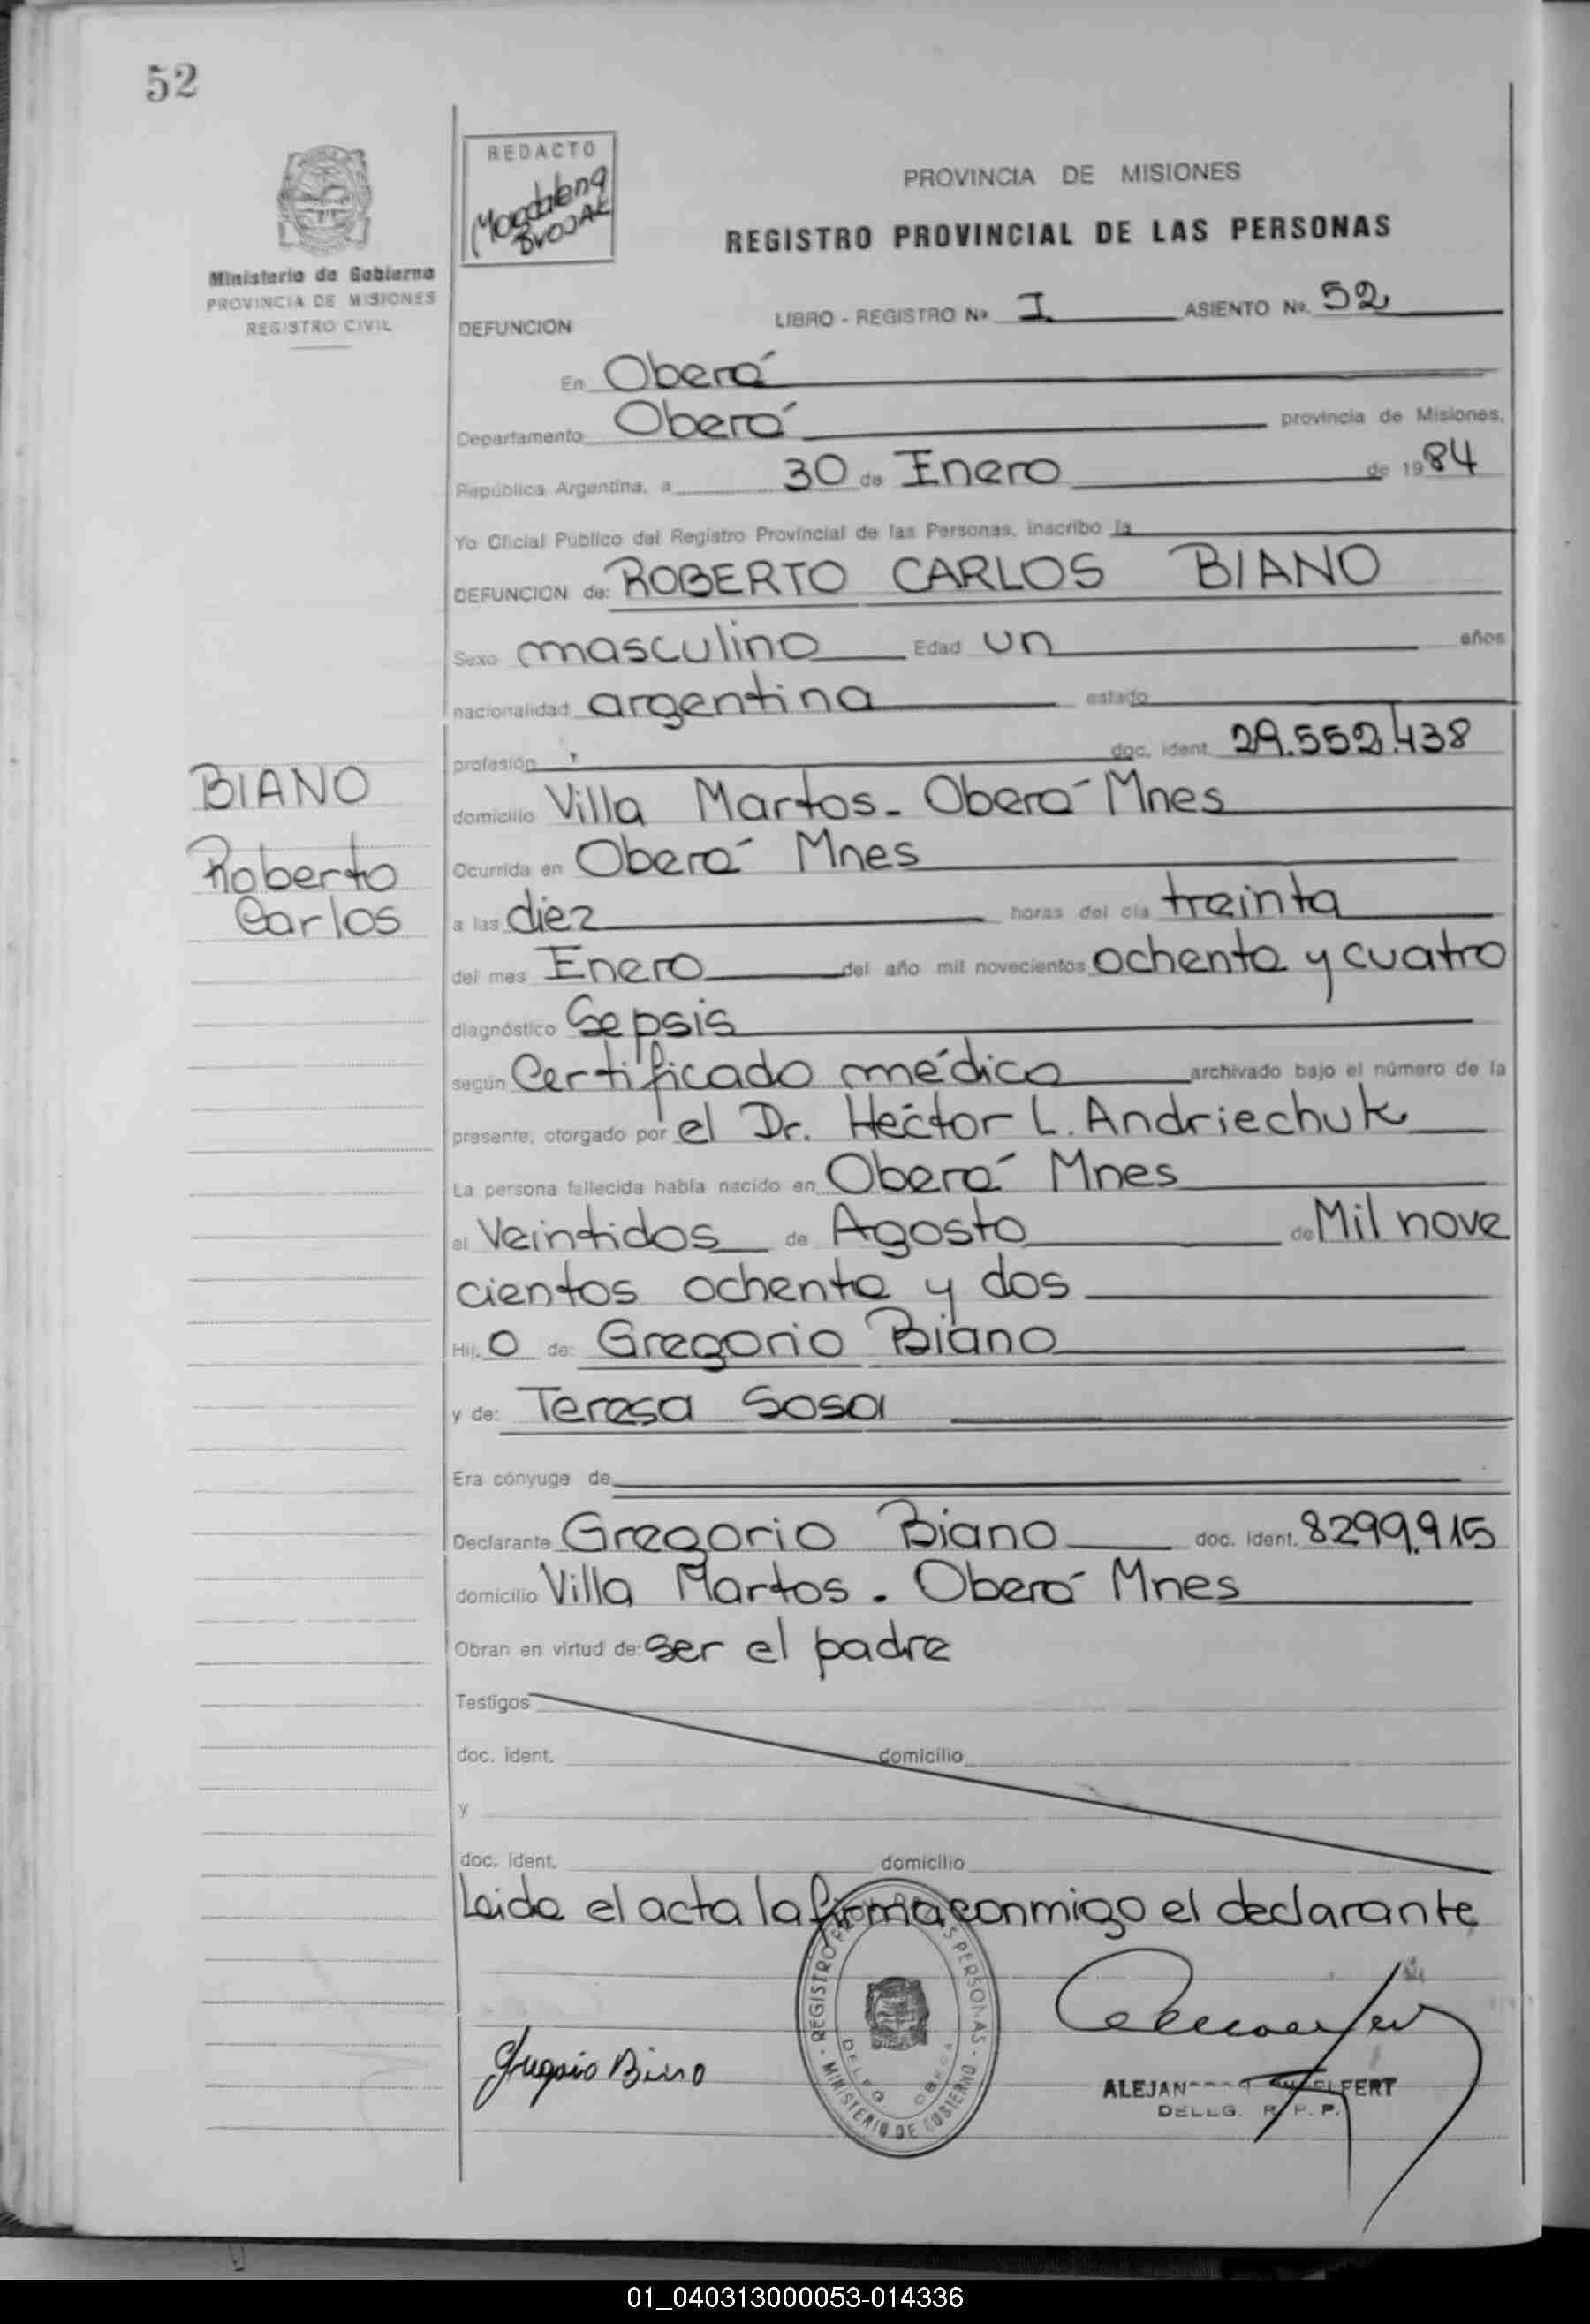 52
REDACTO
Magdalena
BVOJAK
Ministerio de Gobierno
PROVINCIA DE MISIONES
REGISTRO CIVIL
PROVINCIA DE MISIONES
REGISTRO PROVINCIAL DE LAS PERSONAS
DEFUNCION LIBRO - REGISTRO Nº I ASIENTO Nº. 52
En Oberá
Departamento Oberá provincia de Misiones.
República Argentina, a 30 de Enero de 1984
Yo Oficial Público del Registro Provincial de las Personas, inscribo la
DEFUNCION de: ROBERTO CARLOS BIANO
Sexo masculino Edad un años
nacionalidad argentina estado
profesión doc. ident. 29.552.438
BIANO
Roberto
Carlos
domicilio Villa Martos - Oberá Mnes
Ocurrida en Oberá Mnes
a las diez horas del día treinta
del mes Enero del año mil novecientos ochenta y cuatro
diagnóstico Sepsis
según Certificado médico archivado bajo el número de la
presente, otorgado por el Dr. Héctor L. Andriechuk
La persona fallecida había nacido en Oberá Mnes
el Veintidos de Agosto de Mil nove
cientos ochenta y dos
Hij. o de: Gregorio Biano
y de: Teresa Sosa
Era cónyuge de
Declarante Gregorio Biano doc. ident. 8299.915
domicilio Villa Martos - Oberá Mnes
Obran en virtud de: ser el padre
Testigos
doc. ident. domicilio
y
doc. ident. domicilio
Leida el acta la firma conmigo el declarante
REGISTRO PERSONAS - MINISTERIO DE GOBIERNO
DELEG. OBERA
Gregorio Biano
DELEG. R. P. P.
01_040313000053-014336